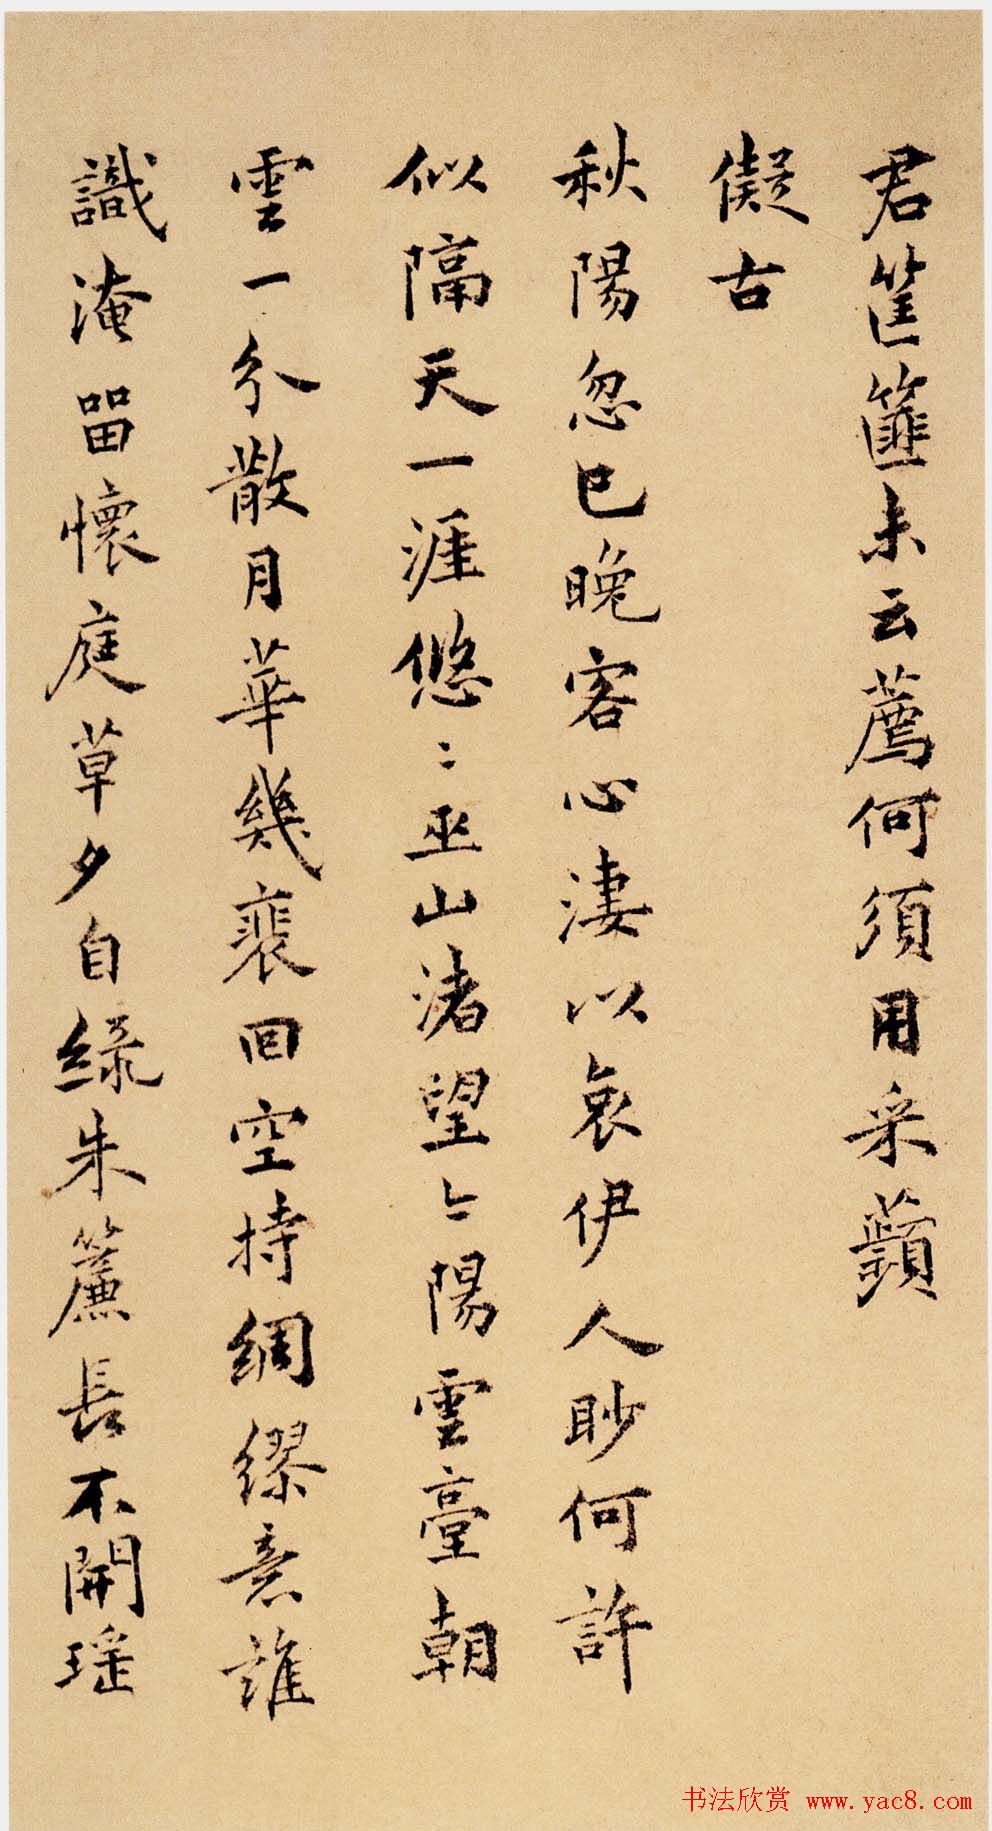 君筐篚未云薦何須用采蘋
儗古
秋陽忽已晚客心淒以哀伊人眇何許
似隔天一涯悠〻巫山渚望〻陽雲臺朝
雲一分散月華幾裴回空持綢繆意誰
識淹留懷庭草夕自綠朱簾長不開瑤
书法欣赏 www.yac8.com